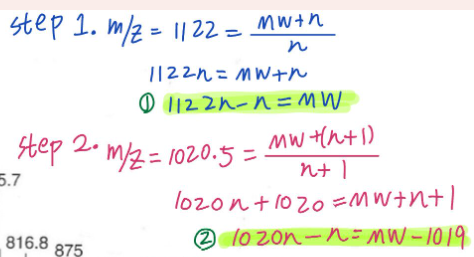 step 1. m/z = 1122 = MW+n / n
1122n = MW+n
① 1122n-n = MW
step 2. m/z = 1020.5 = MW+(n+1) / n+1
5.7
1020n+1020 = MW+n+1
816.8 875
② 1020n-n = MW-1019